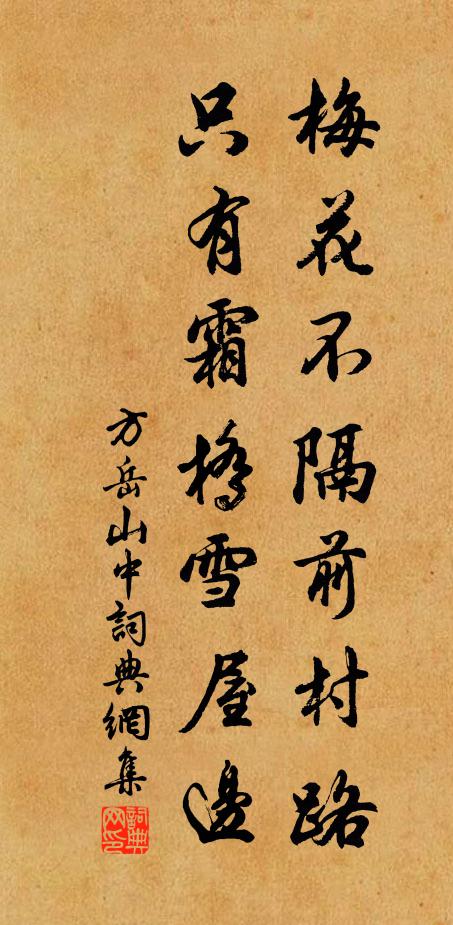 梅花不隔前村路
只有霜橋雪屋邊
方岳山中詞典網集
詞典網印